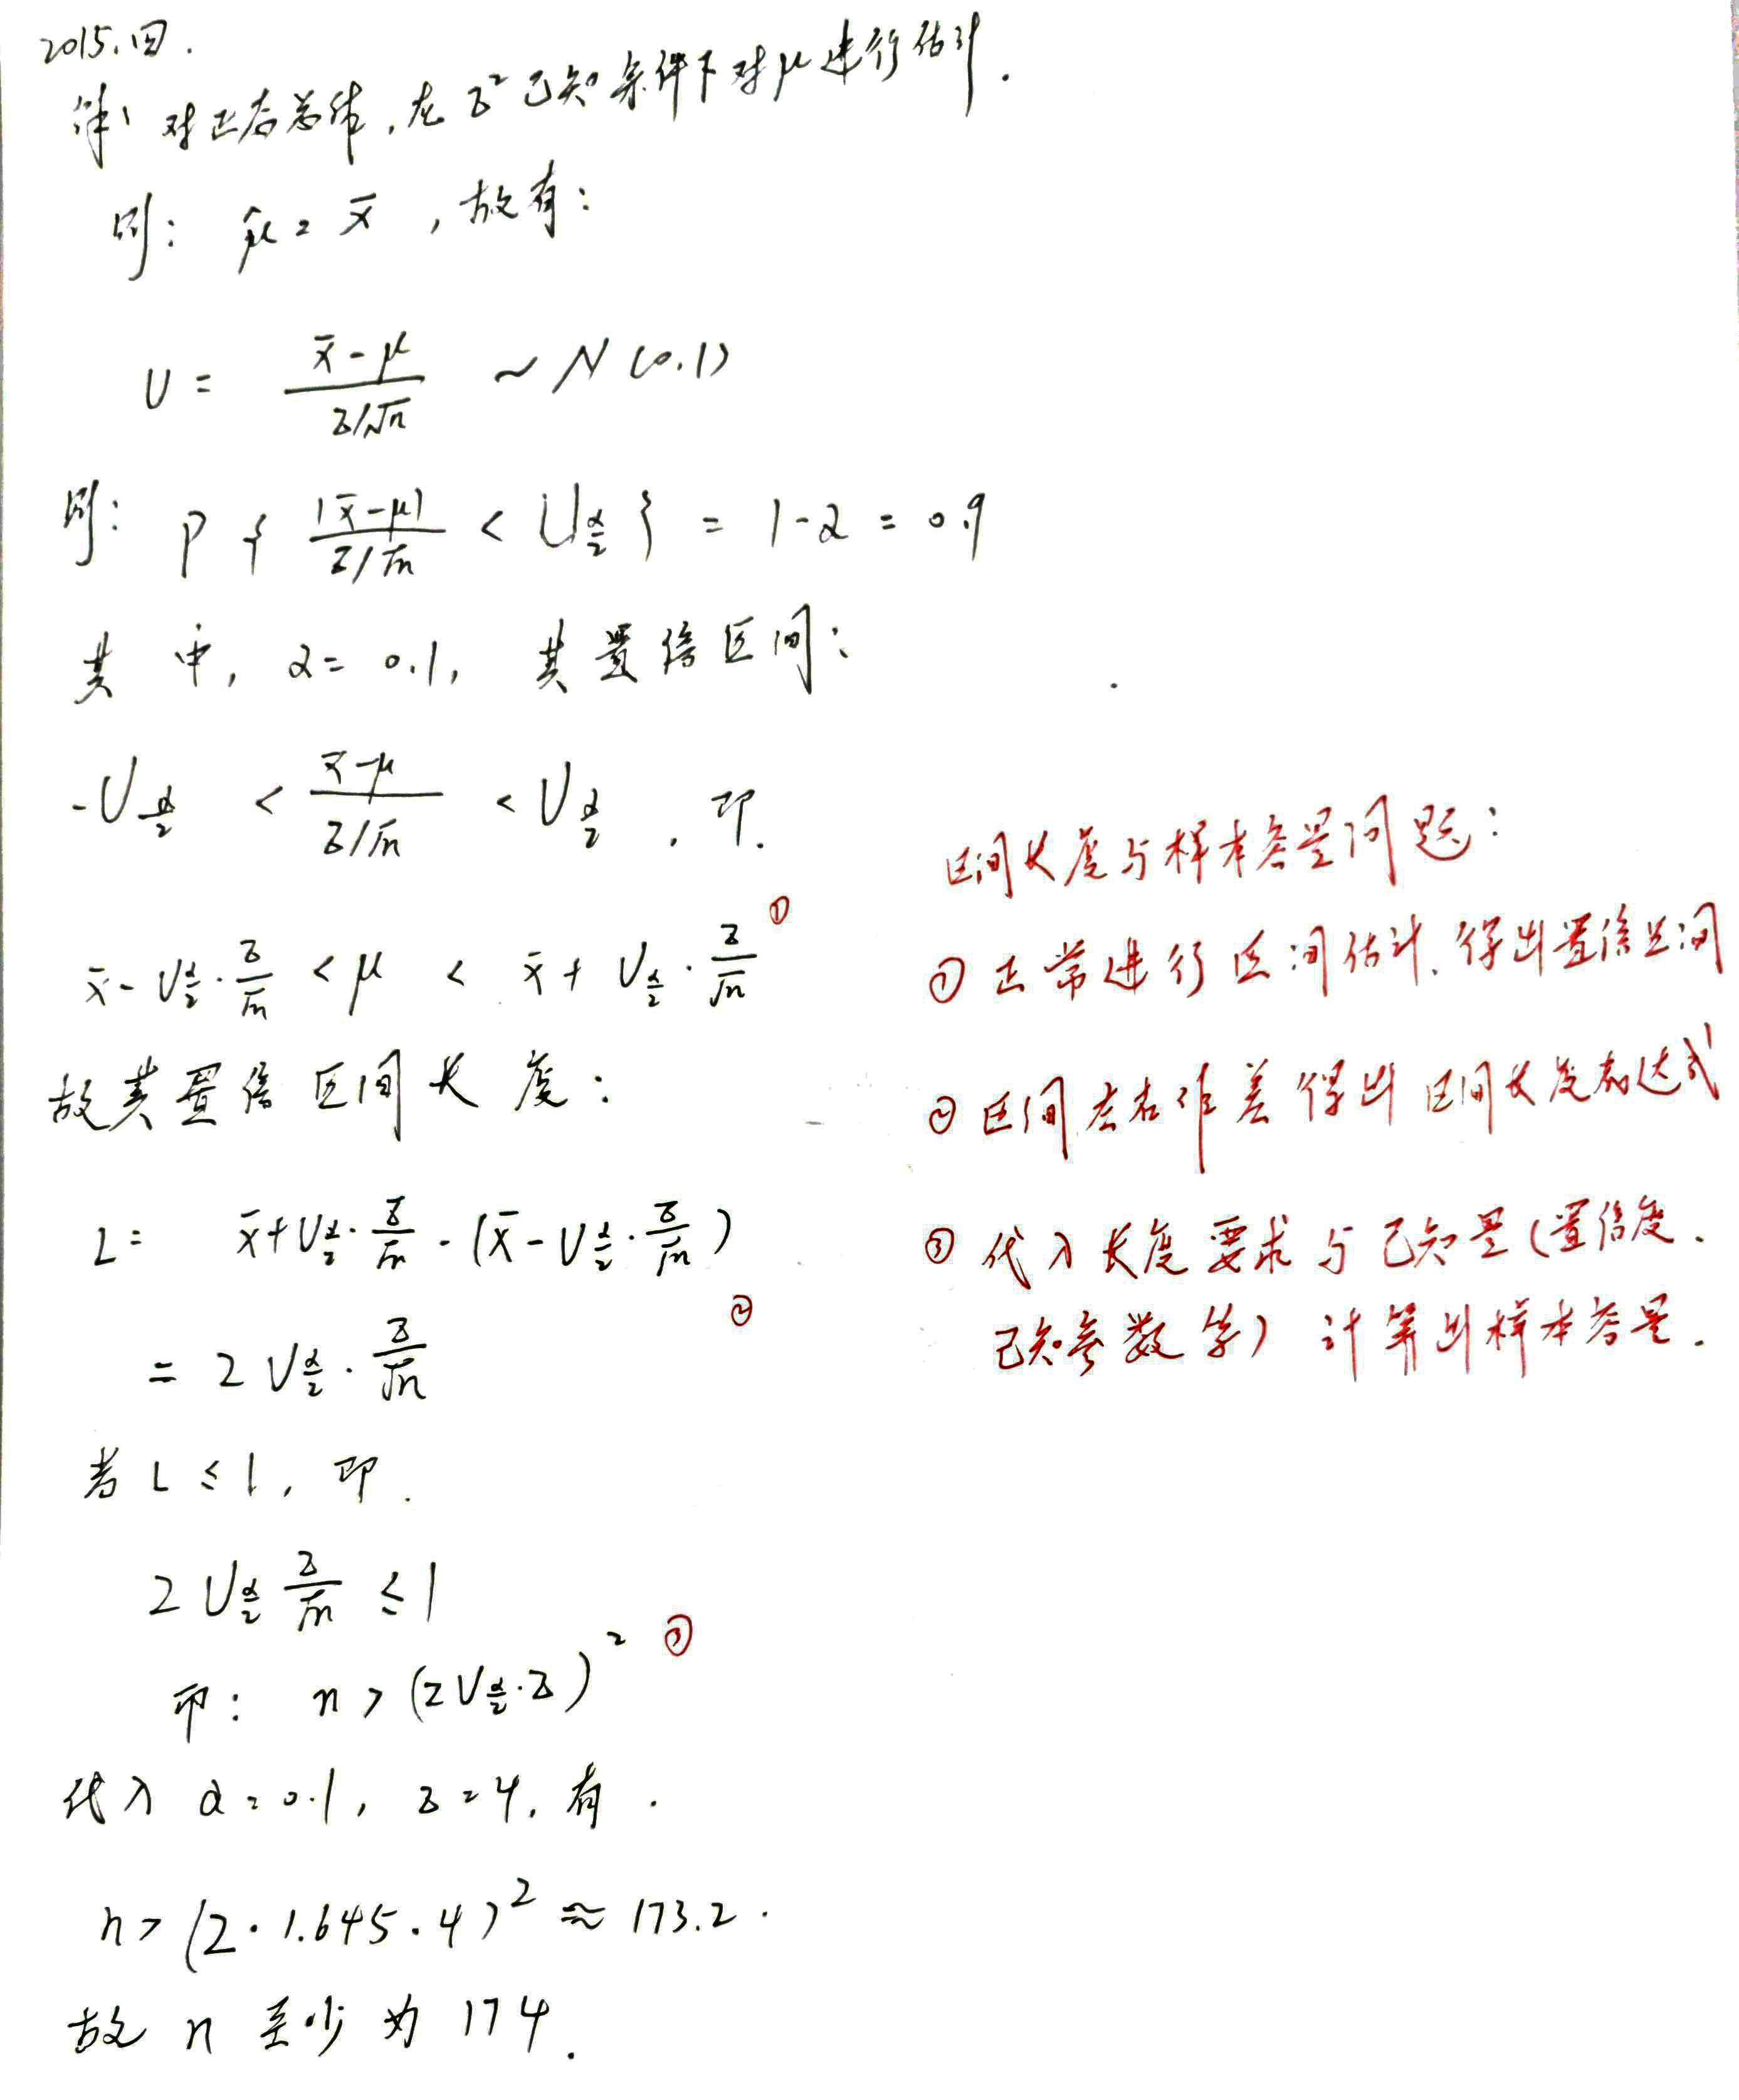 2015.四.
解: 对正态总体,在 σ² 已知条件下对 μ 进行估计.
则: μ̂ = x̄ , 故有:
U = (x̄-μ)/(σ/√n) ~ N(0,1)
则: P{ |x̄-μ|/(σ/√n) < U_{α/2} } = 1-α = 0.9
其中, α = 0.1, 其置信区间:
-U_{α/2} < (x̄-μ)/(σ/√n) < U_{α/2} , 即.
x̄ - U_{α/2}·σ/√n < μ < x̄ + U_{α/2}·σ/√n ①
故其置信区间长度:
L = x̄ + U_{α/2}·σ/√n - (x̄ - U_{α/2}·σ/√n)
= 2U_{α/2}·σ/√n ②
若 L ≤ 1, 即.
2U_{α/2} σ/√n ≤ 1
即: n > (2U_{α/2}·σ)² ③
代入 α = 0.1, σ = 4, 有.
n > (2·1.645·4)² ≈ 173.2.
故 n 至少为 174.
区间长度与样本容量问题:
① 正常进行区间估计, 得出置信区间
② 区间左右作差得出区间长度表达式
③ 代入长度要求与已知量(置信度、
已知参数等) 计算出样本容量.